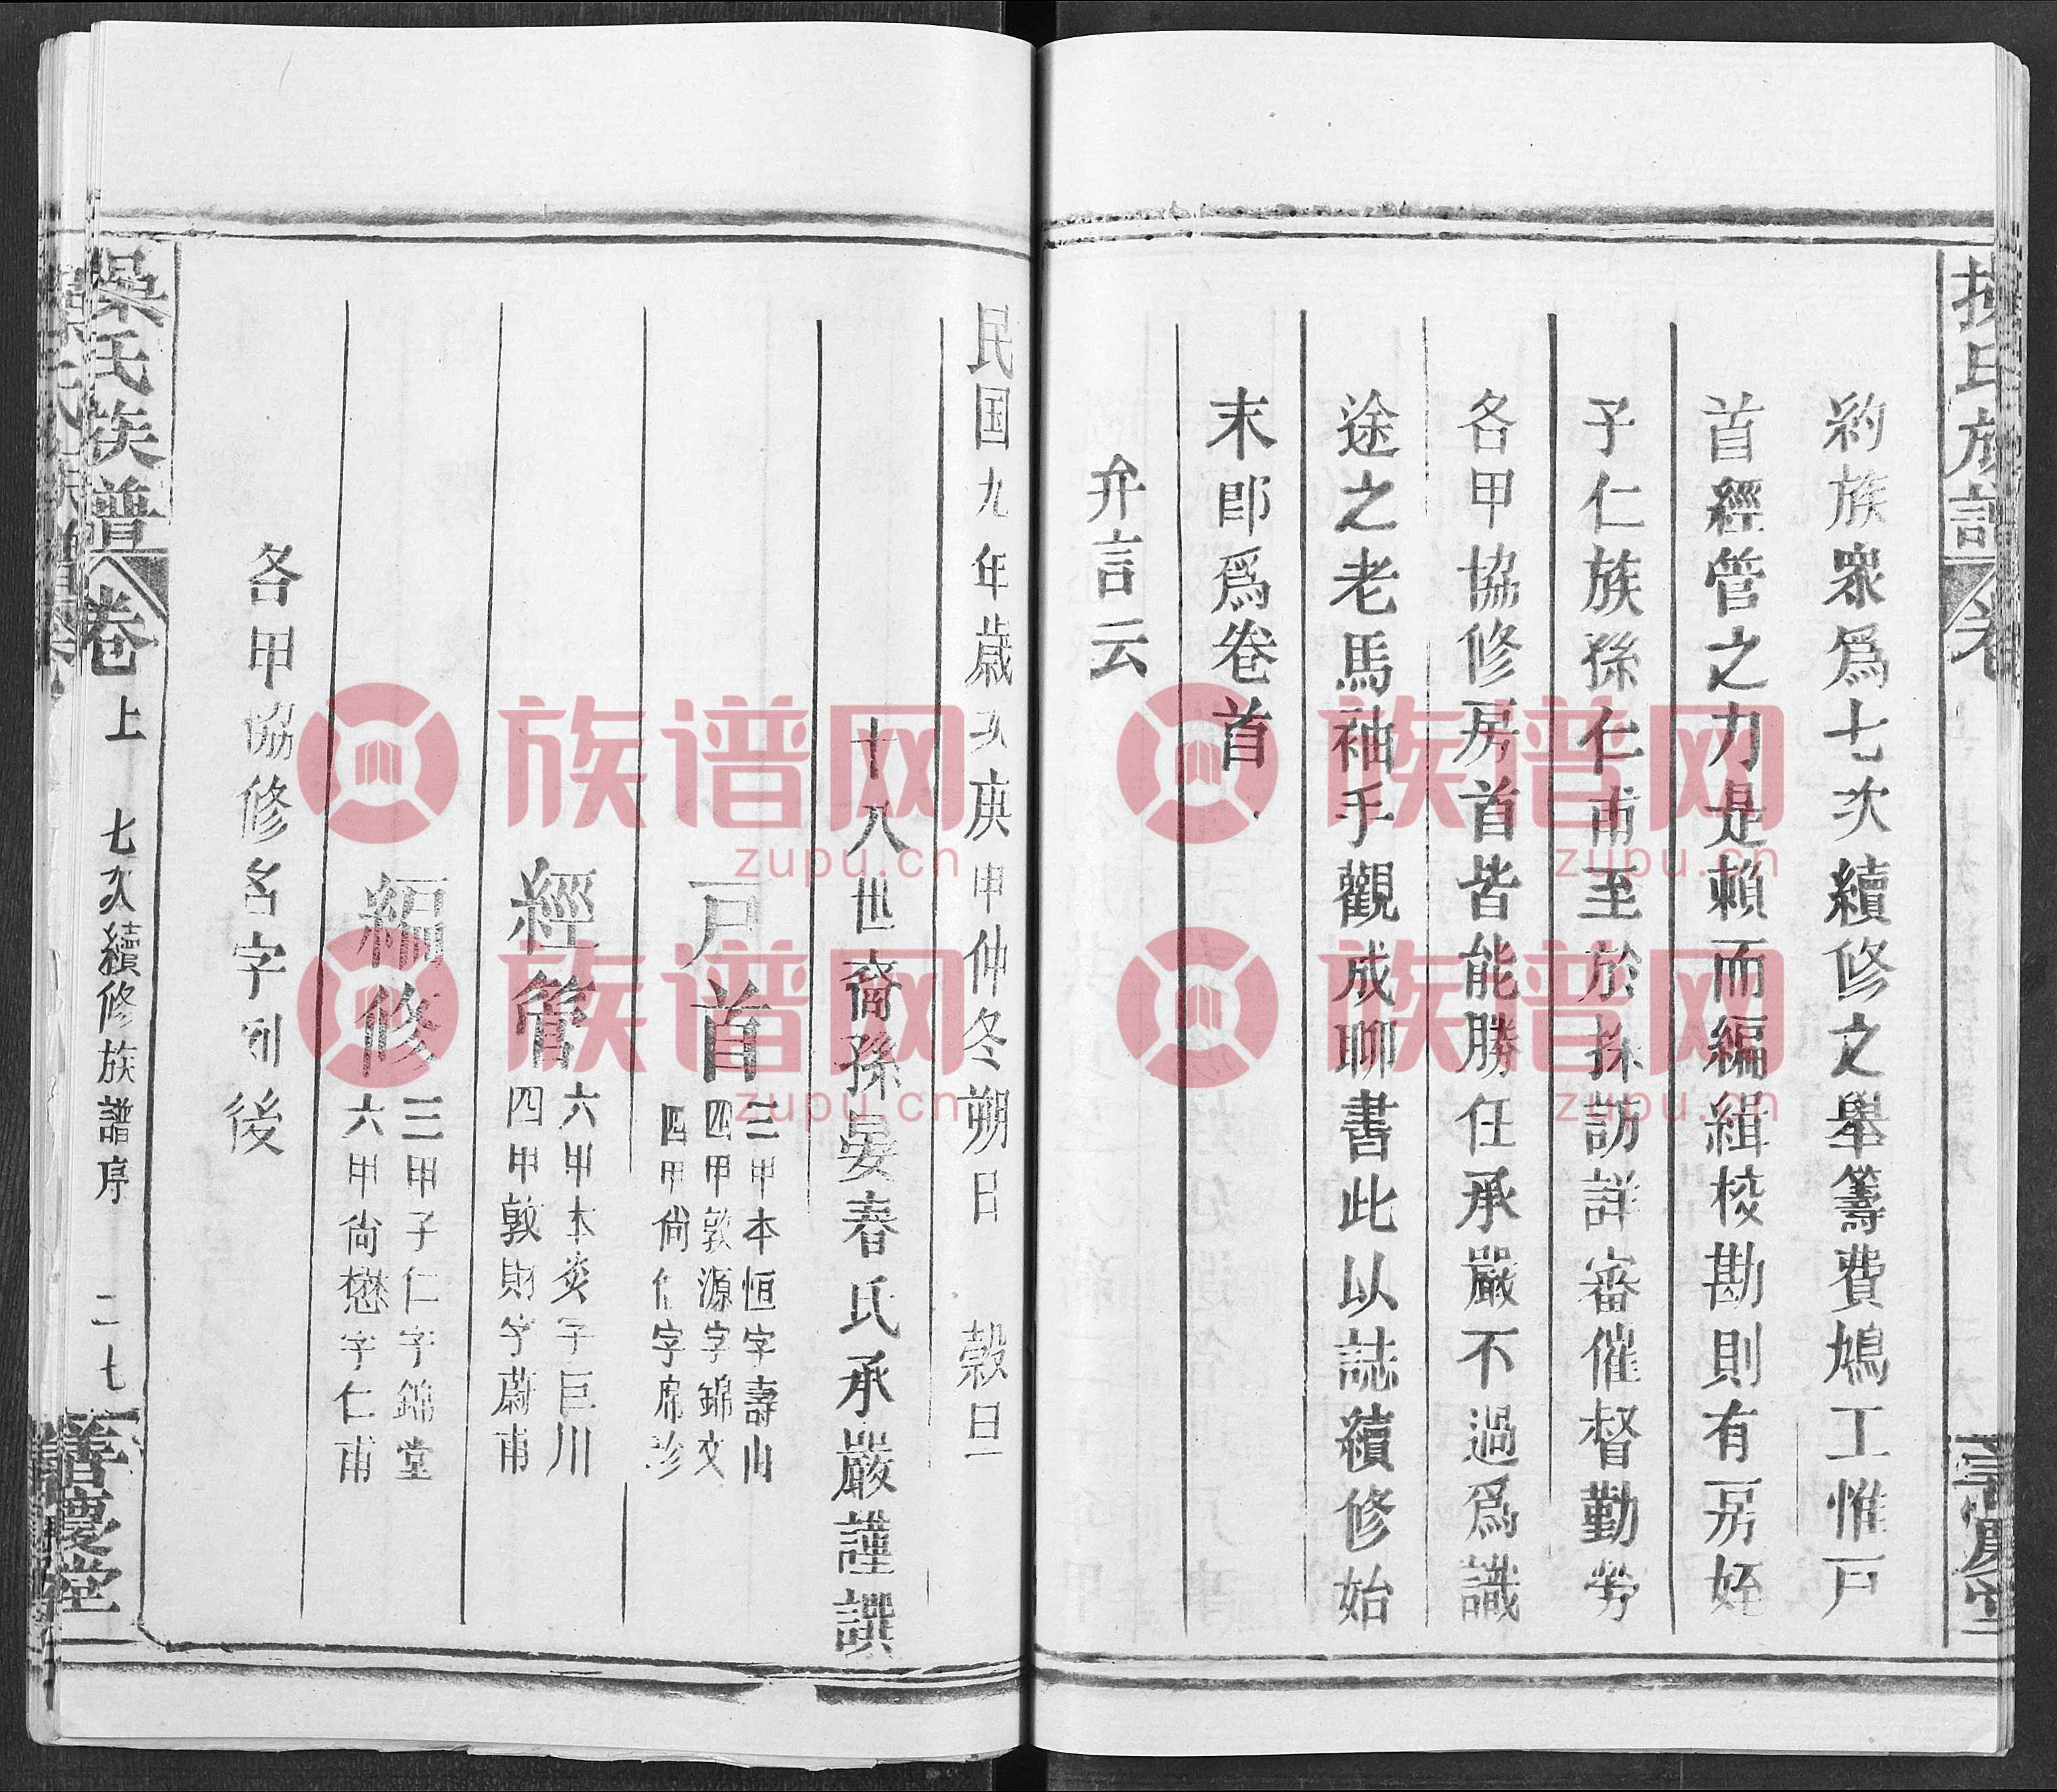 約族眾爲七次續修之舉籌費鳩工惟戸
首經管之力是賴而編緝校勘則有房姪
子仁族孫仁甫至於採訪詳審催督勤勞
各甲協修房首皆能勝任承嚴不過爲識
途之老馬袖手觀成聊書此以誌續修始
末即爲卷首
弁言云
民国九年歲次庚申仲冬朔日 穀旦
十八世裔孫晏春氏承嚴謹譔
戸首
三甲本恒字壽山
四甲敦源字錦文
四甲尚仁字席珍
經管
六甲本炎字巨川
四甲敦財字蔚甫
編修
三甲子仁字錦堂
六甲尚懋字仁甫
各甲協修名字列後
操氏族譜 卷上 七次續修族譜序 二七 善慶堂
族谱网
zupu.cn
族谱网
zupu.cn
族谱网
zupu.cn
族谱网
zupu.cn